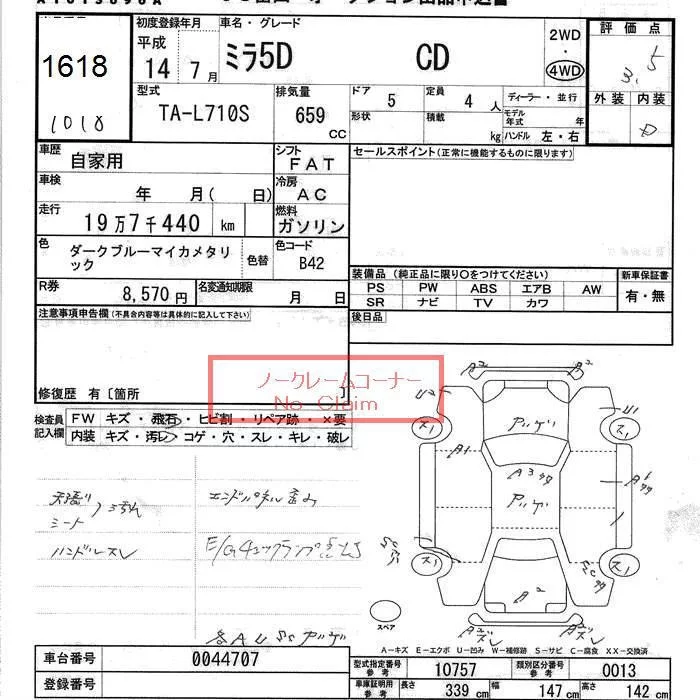 1618
1018
初度登録年月
平成
14 7月
車名・グレード
ミラ5D CD
2WD
・
4WD
評価点
3.5
外装 内装
D
型式
TA-L710S
排気量
659 CC
ドア
5
定員
4 人
ディーラー・並行
形状
積載
kg
モデル年式 年
ハンドル 左・右
車歴
自家用
シフト
FAT
車検
年 月( 日)
冷房
AC
走行
19万7千440 km
燃料
ガソリン
色
ダークブルーマイカメタリック
色替
色コード
B42
R券
8,570円
名変通知期限
月 日
セールスポイント(正常に機能するものに限ります)
装備品(純正品に限り○をつけてください)
PS PW ABS エアB AW
SR ナビ TV カワ
新車保証書
有・無
後日品
注意事項申告欄(不具合内容等は具体的に記入して下さい)
ノークレームコーナー
No Claim
修復歴 有〔箇所 〕
検査員記入欄
FW キズ・飛石・ヒビ割・リペア跡・×要
内装 キズ・汚レ・コゲ・穴・スレ・キレ・破レ
シート
ハンドルスレ
エンドパネル歪み
A2
A2
U2
U1
ス1
ス1
アゲ
A1
A3
アゲ
A1
ス1
ス1
A2
スペア
A−キズ E−エクボ U−凹み W−補修跡 S−サビ C−腐食 XX−交換済
車台番号
0044707
登録番号
型式指定番号 参考
10757
類別区分番号 参考
0013
車庫証明用 参考
長さ 339 cm
幅 147 cm
高さ 142 cm